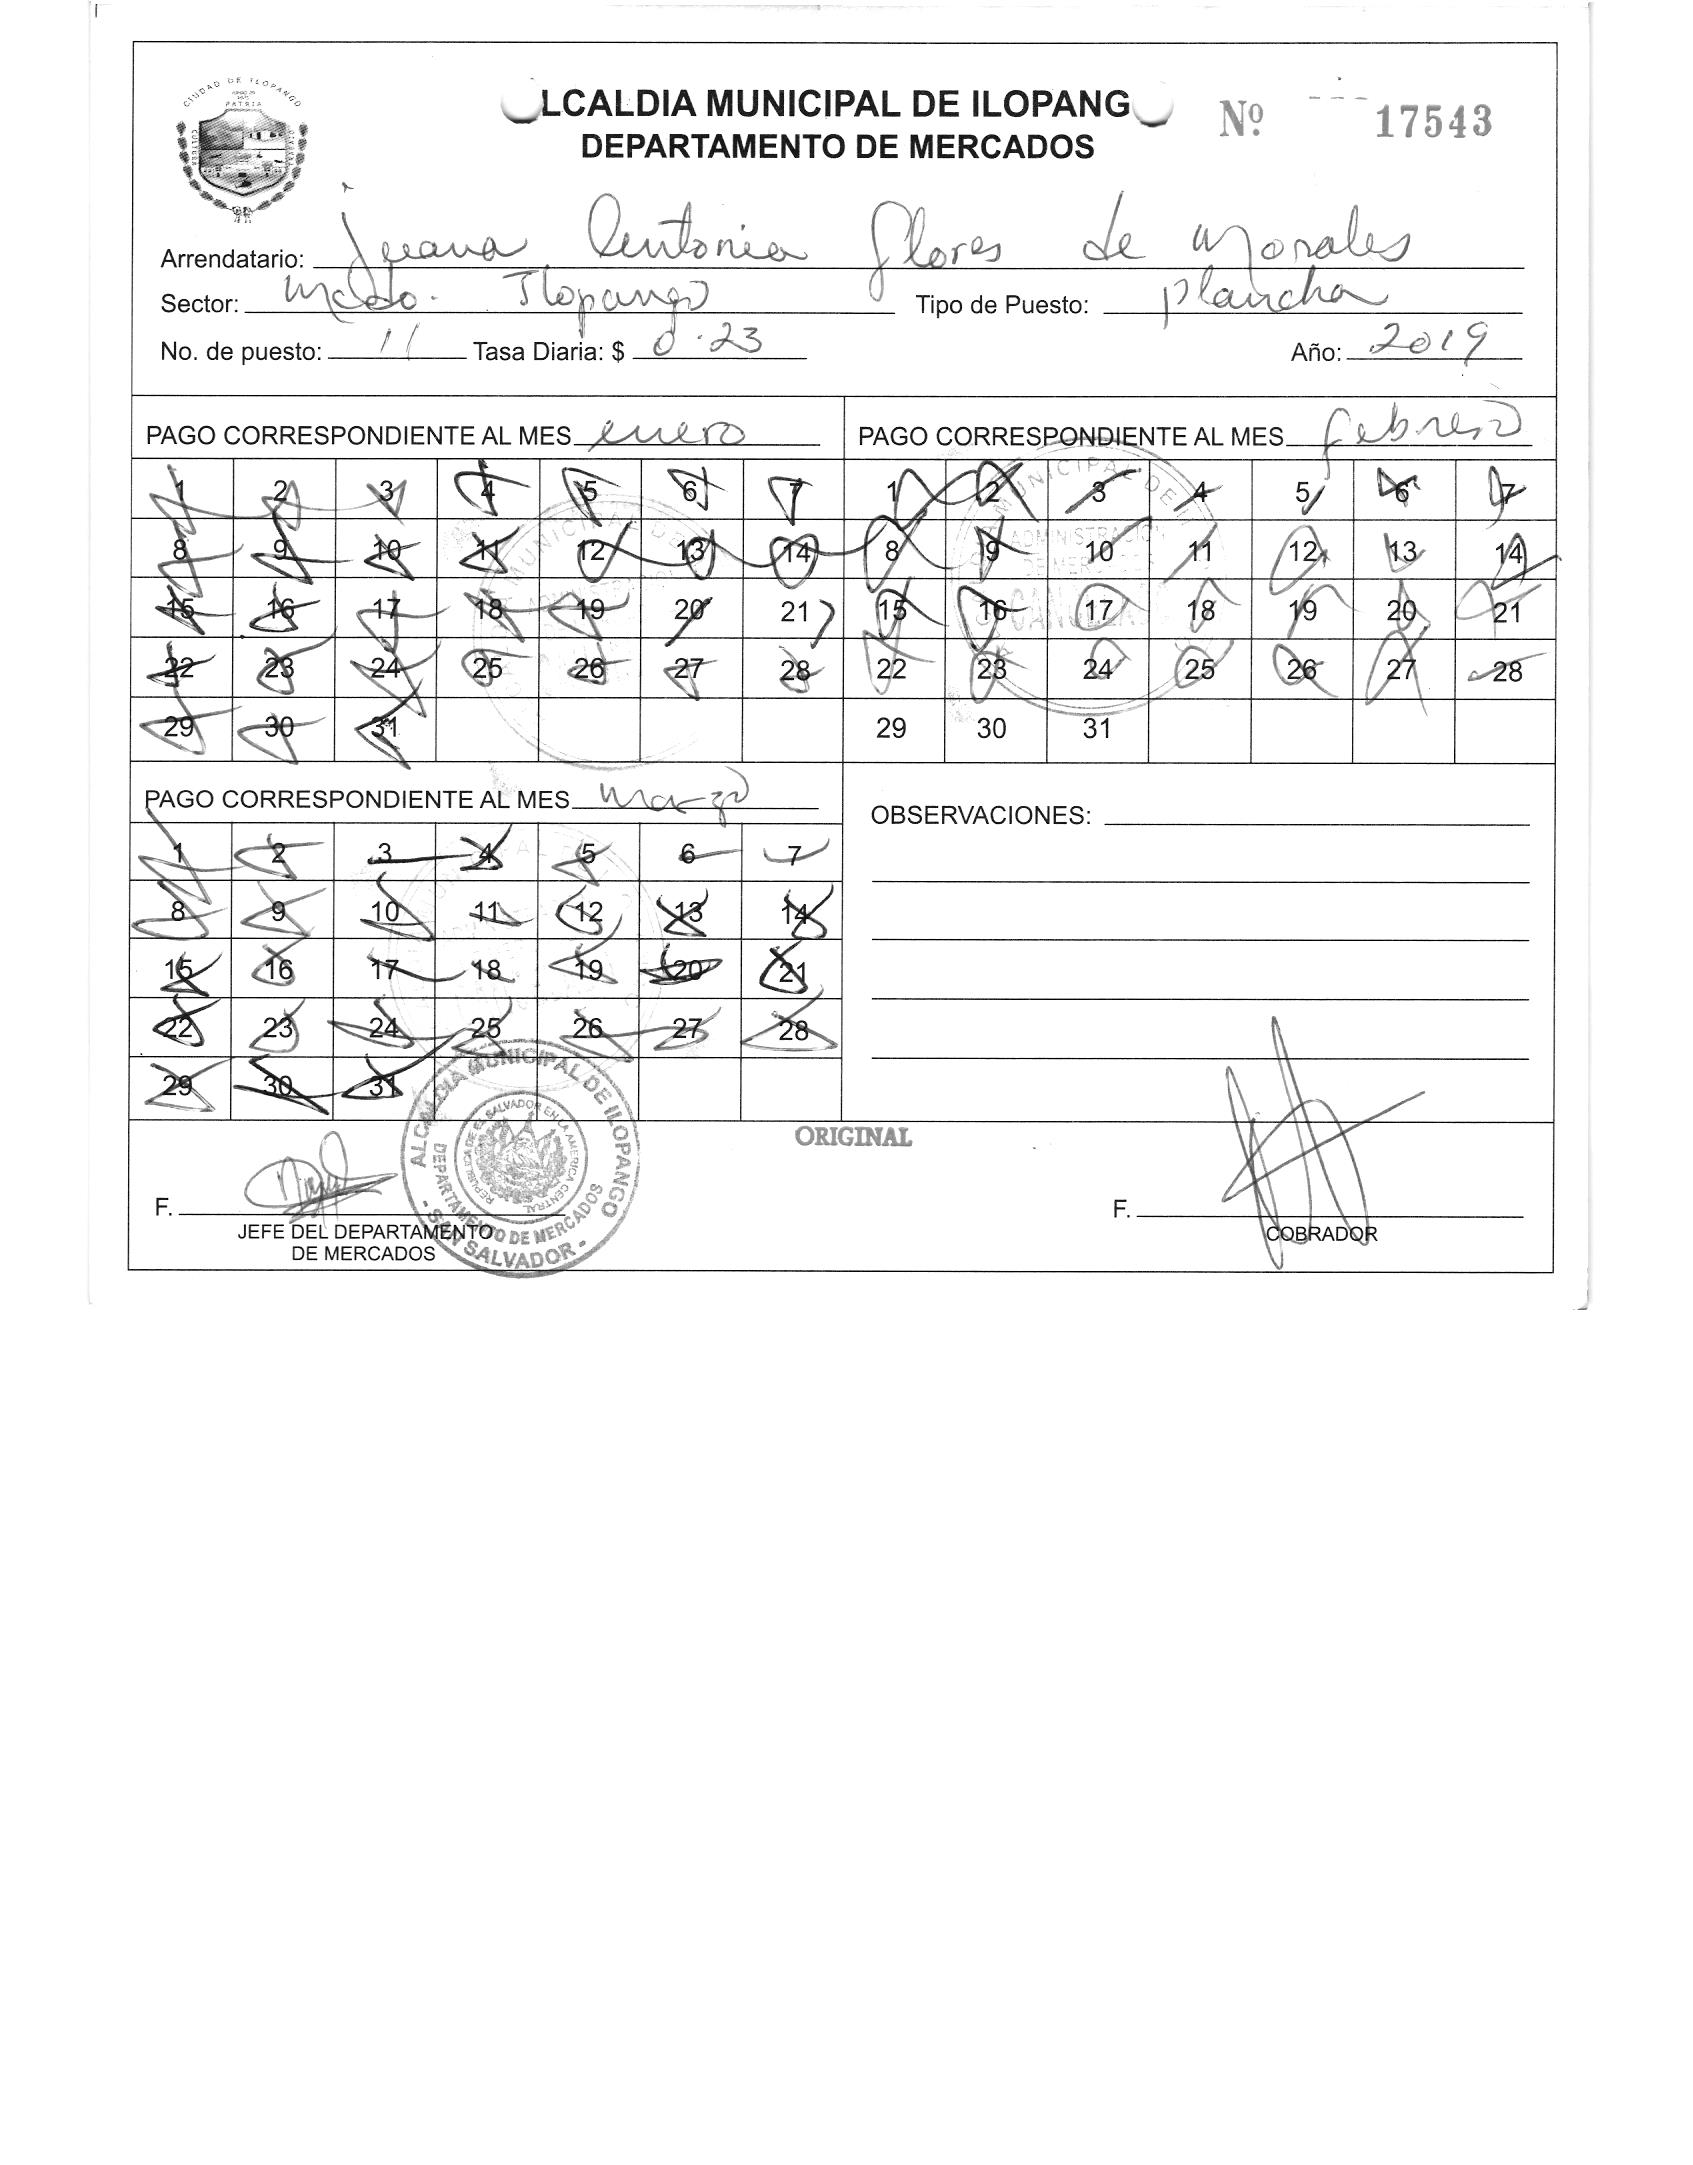 CIUDAD DE ILOPANGO
PATRIA
CULTURA
LCALDIA MUNICIPAL DE ILOPANG
DEPARTAMENTO DE MERCADOS
Nº 17543
Arrendatario: Juana Antonia Flores de Morales
Sector: Mcdo. Ilopango Tipo de Puesto: plancha
No. de puesto: 11 Tasa Diaria: $ 0.23 Año: 2019
PAGO CORRESPONDIENTE AL MES enero
1 2 3 4 5 6 7
8 9 10 11 12 13 14
15 16 17 18 19 20 21
22 23 24 25 26 27 28
29 30 31
PAGO CORRESPONDIENTE AL MES febrero
1 2 3 4 5 6 7
8 9 10 11 12 13 14
15 16 17 18 19 20 21
22 23 24 25 26 27 28
29 30 31
MUNICIPAL DE
ADMINISTRACION
DE MERCADOS
PAGO CORRESPONDIENTE AL MES marzo
1 2 3 4 5 6 7
8 9 10 11 12 13 14
15 16 17 18 19 20 21
22 23 24 25 26 27 28
29 30 31
OBSERVACIONES:
ORIGINAL
F.
JEFE DEL DEPARTAMENTO
DE MERCADOS
ALCALDIA MUNICIPAL DE ILOPANGO
DEPARTAMENTO DE MERCADOS
- SAN SALVADOR -
REPUBLICA DE EL SALVADOR EN LA AMERICA CENTRAL
F.
COBRADOR